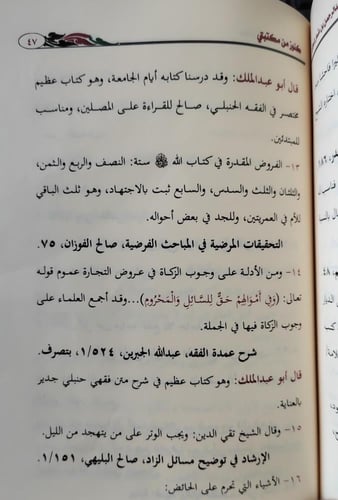 كنوز من مكتبتي
٤٧
قال أبو عبدالملك: وقد درسنا كتابه أيام الجامعة، وهو كتاب عظيم
مختصر في الفقه الحنبلي، صالح للقراءة على المصلين، ومناسب
للمبتدئين.
١٣- الفروض المقدرة في كتاب الله ﷻ ستة: النصف والربع والثمن،
والثلثان والثلث والسدس، والسابع ثبت بالاجتهاد، وهو ثلث الباقي
للأم في العمريتين، وللجد في بعض أحواله.
التحقيقات المرضية في المباحث الفرضية، صالح الفوزان، ٧٥.
١٤- ومن الأدلة على وجوب الزكاة في عروض التجارة عموم قوله
تعالى: (وَفِي أَمْوَالِهِمْ حَقٌّ لِلسَّائِلِ وَالْمَحْرُومِ)...وقد أجمع العلماء على
وجوب الزكاة فيها في الجملة.
شرح عمدة الفقه، عبدالله الجبرين، ١/٥٢٤، بتصرف.
قال أبو عبدالملك: وهو كتاب عظيم في شرح متن فقهي حنبلي جدير
بالعناية.
١٥- وقال الشيخ تقي الدين: ويجب الوتر على من يتهجد من الليل.
الإرشاد في توضيح مسائل الزاد، صالح البليهي، ١/١٥١.
١٦- الأشياء التي تحرم على الحائض: